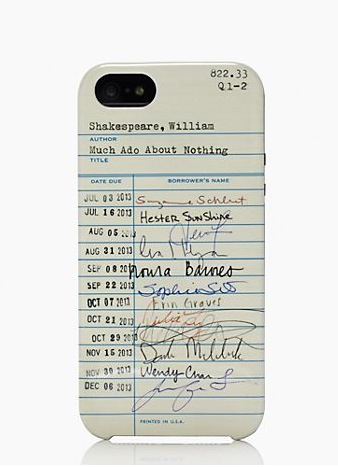 822.33
Q1-2
Shakespeare, William
AUTHOR
Much Ado About Nothing
TITLE
DATE DUE BORROWER'S NAME
JUL 03 2013
JUL 16 2013 HESTER SUNSHINE
AUG 05 2013
AUG 31 2013
SEP 08 2013 Barnes
SEP 22 2013 Sophia
OCT 07 2013 Erin Graves
OCT 21 2013
OCT 29 2013
NOV 15 2013
NOV 30 2013 Wendy Chan
DEC 06 2013
PRINTED IN U.S.A.